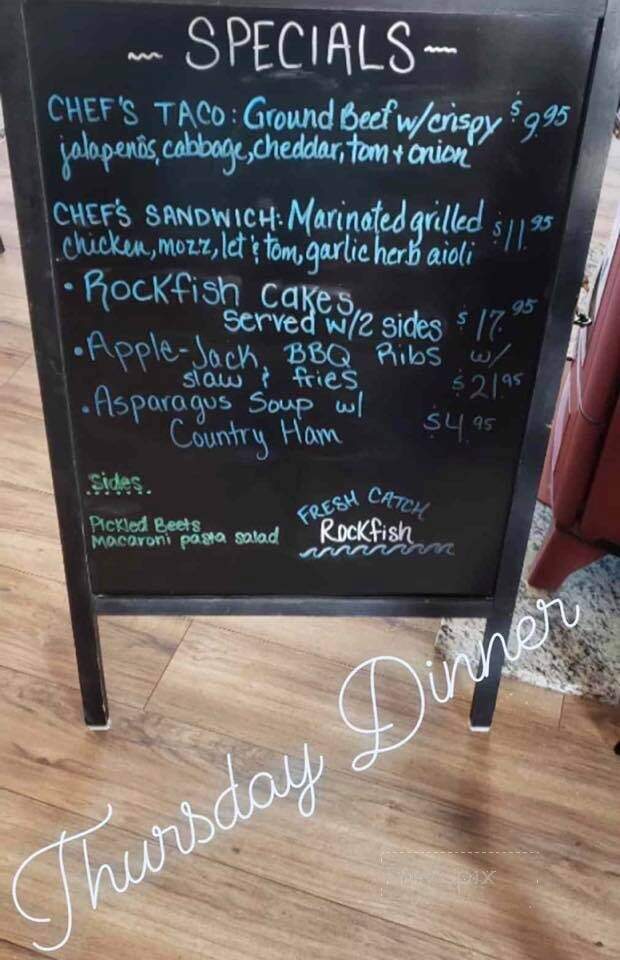 ~ SPECIALS ~
CHEF'S TACO: Ground Beef w/crispy $9.95
jalapeños, cabbage, cheddar, tom + onion
CHEF'S SANDWICH: Marinated grilled $11.95
chicken, mozz, let & tom, garlic herb aioli
• Rockfish cakes
served w/2 sides $17.95
• Apple-Jack BBQ Ribs w/
slaw & fries $21.95
• Asparagus Soup w/ $4.95
Country Ham
Sides
Pickled Beets
Macaroni pasta salad
FRESH CATCH
Rockfish
Thursday Dinner